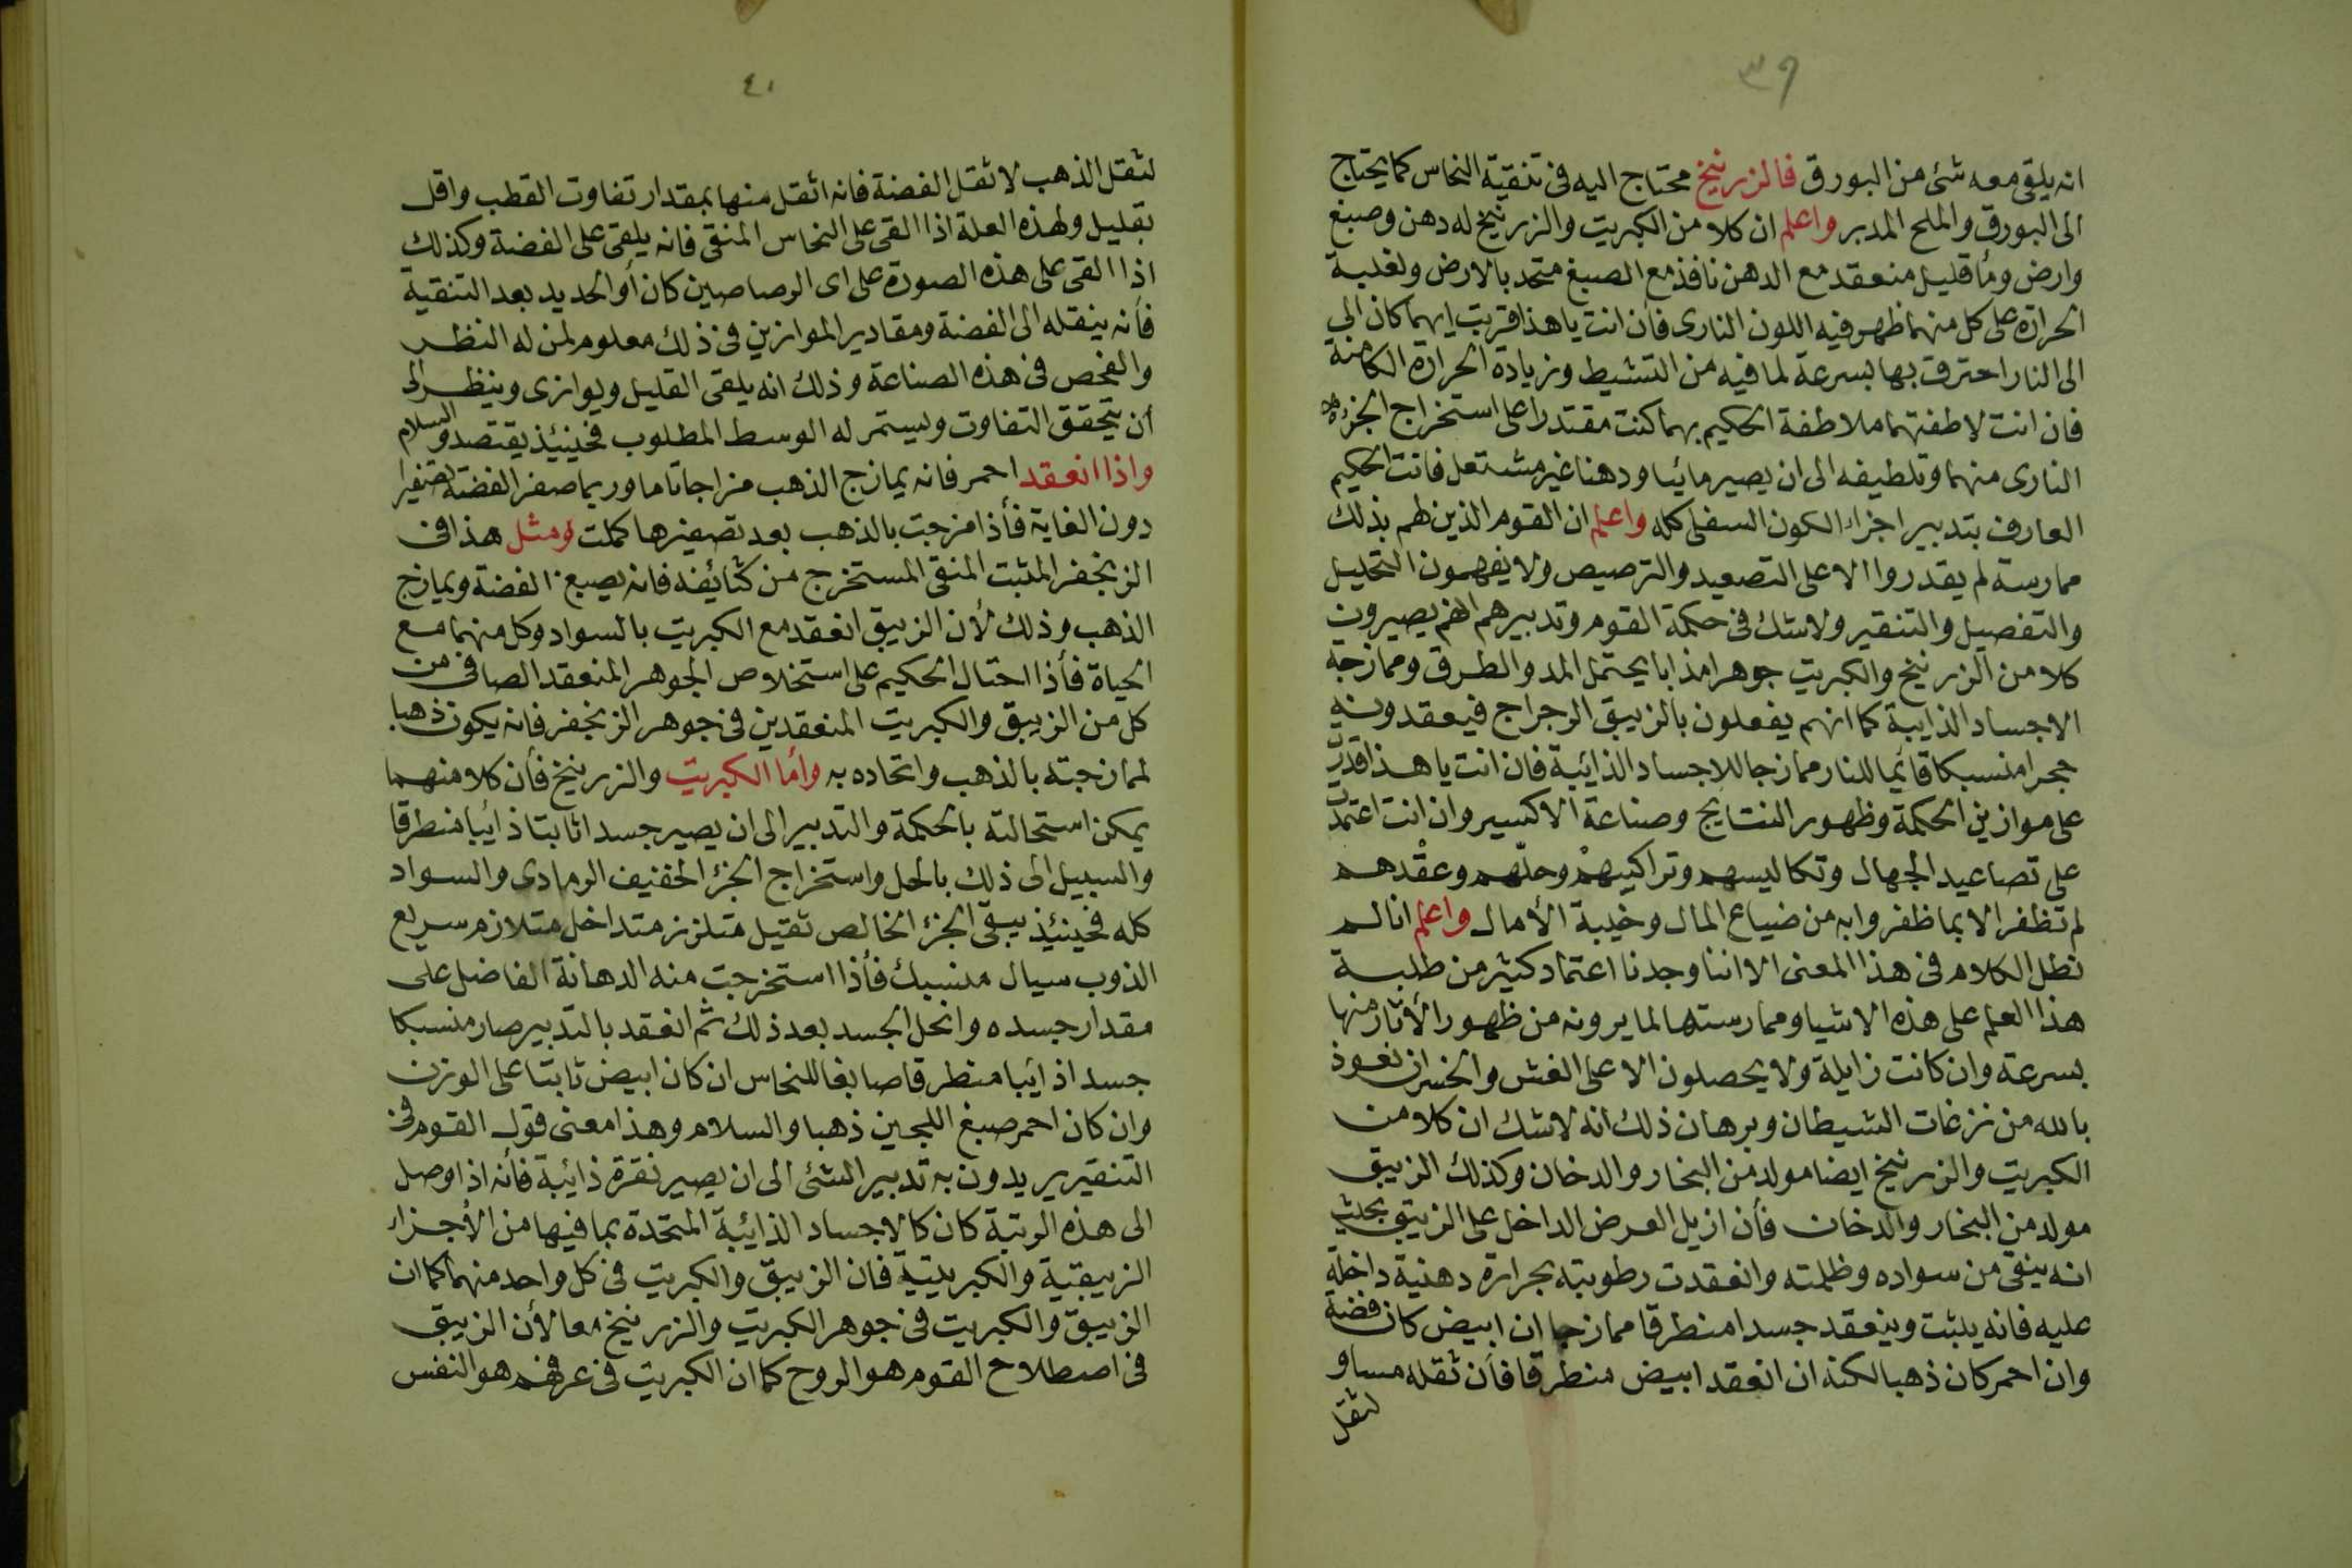 ٣٩
انه يلقى معه شئ من البورق فالزرنيخ محتاج اليه فى تنقية النحاس كما يحتاج
الى البورق والملح المدبر واعلم ان كلا من الكبريت والزرنيخ له دهن وصبغ
وارض وماً قليل منعقد مع الدهن نافذ مع الصبغ متحد بالارض ولغلبة
الحرارة على كل منهما ظهر فيه اللون النارى فأن انت يا هذا قربت ايهما كان الى
الى النار احترق بها بسرعة لما فيه من التشيط وزيادة الحرارة الكامنة
فان انت لاطفتهما ملاطفة الحكيم بهما كنت مقتدرا على استخراج الجزء
النارى منهما وتلطيفه الى ان يصير مائيا ودهنا غير مشتعل فانت الحكيم
العارف بتدبير اجزاء الكون السفلى كله واعلم ان القوم الذين لهم بذلك
ممارسة لم يقدروا الا على التصعيد والترصيص ولا يفهمون التحليل
والتفصيل والتنقير ولا شك فى حكمة القوم وتدبيرهم انهم يصيرون
كلا من الزرنيخ والكبريت جوهرا مذابا يحتمل المد والطرق وممازجة
الاجساد الذايبة كما انهم يفعلون بالزيبق الرجراج فيعقدونه
حجرا منسبكا قائما للنار ممازجا للاجساد الذائبة فان انت يا هذا قدرت
على موازين الحكمة وظهور النتايج وصناعة الاكسير وان انت اعتمدت
على تصاعيد الجهال وتكاليسهم وتراكيبهم وحلّهم وعقدهم
لم تظفر الا بما ظفروا به من ضياع المال وخيبة الأمال واعلم انا لم
نطل الكلام فى هذا المعنى الا اننا وجدنا اعتماد كثير من طلبة
هذا العلم على هذه الاشيا وممارستها لما يرونه من ظهور الأثار منها
بسرعة وان كانت زايلة ولا يحصلون الا على الغش والخسران نعوذ
بالله من نزغات الشيطان وبرهان ذلك انه لا شك ان كلا من
الكبريت والزرنيخ ايضا مولد من البخار والدخان وكذلك الزيبق
مولد من البخار والدخان فأن ازيل العرض الداخل على الزيبق بحيث
انه ينقى من سواده وظلمته وانعقدت رطوبته بحرارة دهنية داخلة
عليه فانه يثبت وينعقد جسدا منطرقا ممازجا ان ابيض كان فضة
وان احمر كان ذهبا لكنه ان انعقد ابيض منطرقا فأن ثقله مساو
لثقل
٤٠
لثقل الذهب لا ثقل الفضة فانه اثقل منها بمقدار تفاوت القطب واقل
بقليل ولهذه العلة اذا القى على النحاس المنقى فانه يلقى على الفضة وكذلك
اذا القى على هذه الصورة على اى الرصاصين كان أو الحديد بعد التنقية
فأنه ينقله الى الفضة ومقادير الموازين فى ذلك معلوم لمن له النظر
والفحص فى هذه الصناعة وذلك انه يلقى القليل ويوازى وينظر الى
أن يتحقق التفاوت ويستمر له الوسط المطلوب فحينئذ يقتصد والسلام
واذا انعقد احمر فانه يمازج الذهب مزاجا تاما وربما صفر الفضة تصفيرا
دون الغاية فأذا مزجت بالذهب بعد تصفيرها كملت ومثل هذا فى
الزنجفر المثبت المنقى المستخرج من كثائفه فانه يصبغ الفضة ويمازج
الذهب وذلك لأن الزيبق انعقد مع الكبريت بالسواد وكل منهما مع
الحياة فأذا احتال الحكيم على استخلاص الجوهر المنعقد الصافى من
كل من الزيبق والكبريت المنعقدين فى جوهر الزنجفر فانه يكون ذهبا
لممازجته بالذهب واتحاده به وأما الكبريت والزرنيخ فأن كلا منهما
يمكن استحالته بالحكمة والتدبير الى ان يصير جسدا ثابتا ذائبا منطرقا
والسبيل الى ذلك بالحل واستخراج الجزء الخفيف الرمادى والسواد
كله فحينئذ يبقى الجزء الخالص ثقيل متلزز متداخل متلازم سريع
الذوب سيال منسبك فأذا استخرجت منه الدهانة الفاضل على
مقدار جسده وانحل الجسد بعد ذلك ثم انعقد بالتدبير صار منسبكا
جسدا ذائبا منطرقا صابغا للنحاس ان كان ابيض ثابتا على الوزن
وان كان احمر صبغ اللجين ذهبا والسلام وهذا معنى قول القوم فى
التنقير يريدون به تدبير الشئ الى ان يصير نقرة ذائبة فأنه اذا وصل
الى هذه الرتبة كان كالاجساد الذائبة المتحدة بما فيها من الأجزاء
الزيبقية والكبريتية فان الزيبق والكبريت فى كل واحد منهما كما ان
الزيبق والكبريت فى جوهر الكبريت والزرنيخ معا لأن الزيبق
فى اصطلاح القوم هو الروح كما ان الكبريت فى عرفهم هو النفس